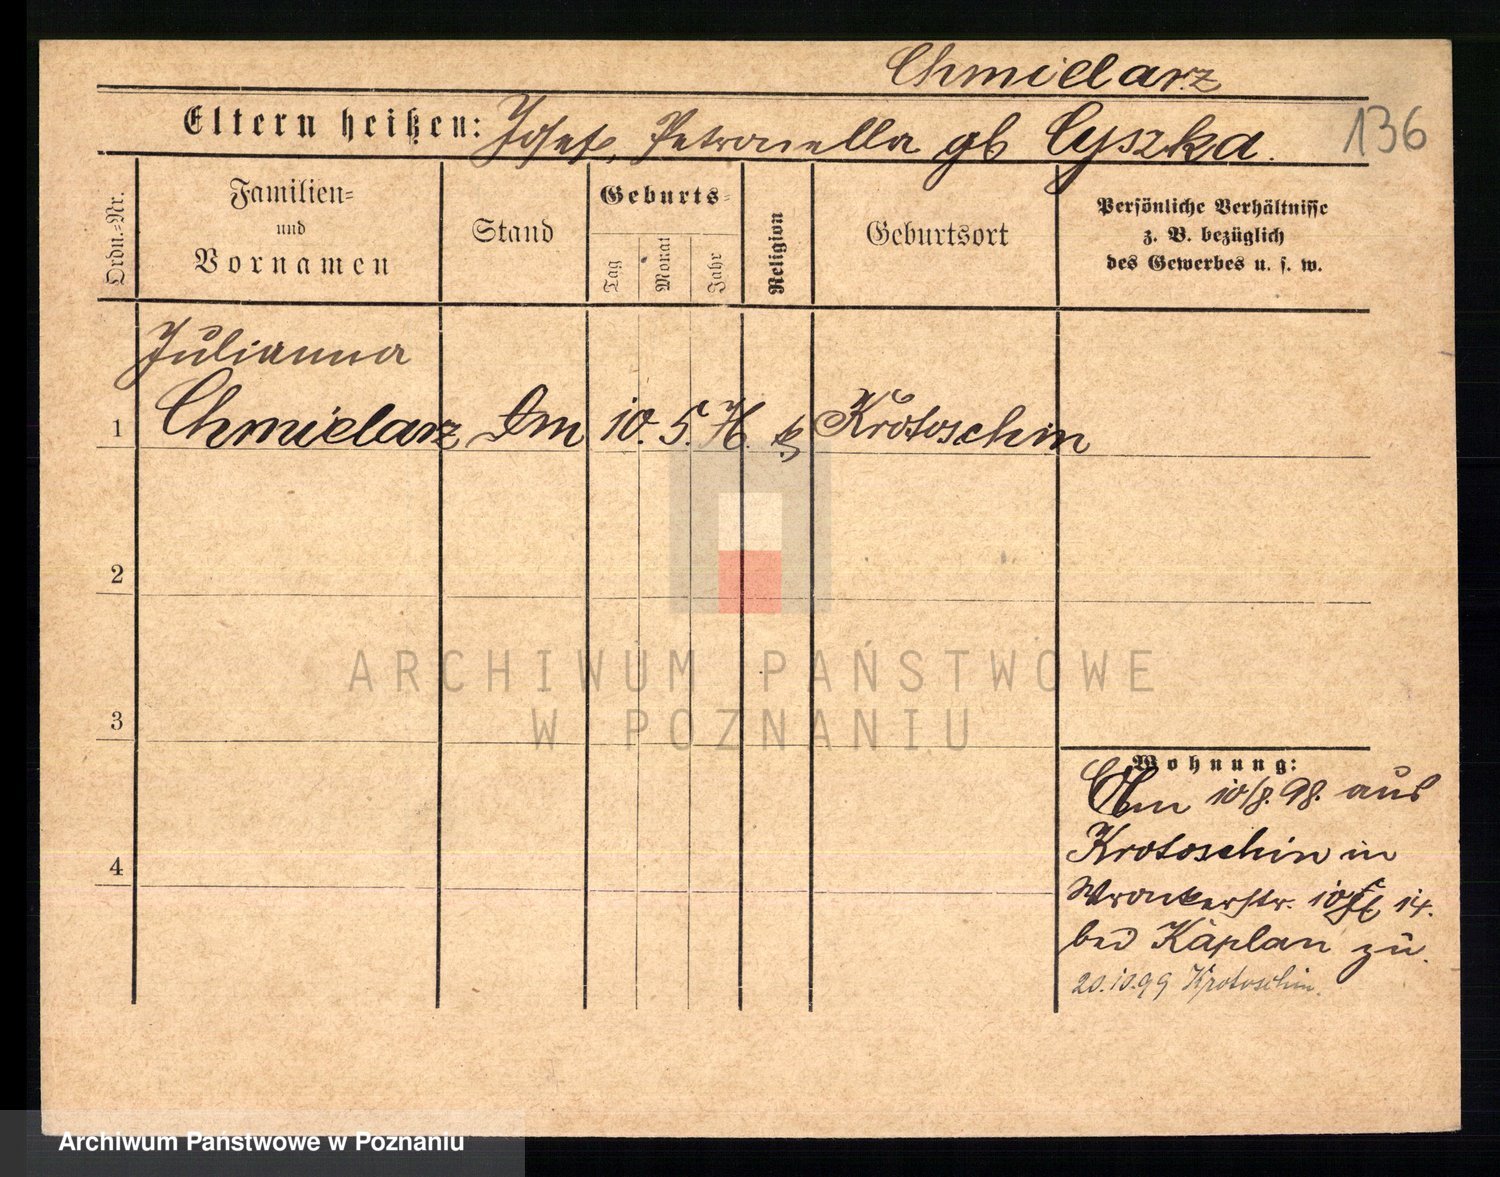 Chmielarz
Eltern heißen: Josef, Petronella gb Cyszka.
136
Ordn.-Nr.
Familien-
und
Vornamen
Stand
Geburts-
Tag
Monat
Jahr
Religion
Geburtsort
Persönliche Verhältnisse
z. B. bezüglich
des Gewerbes u. s. w.
Julianna
1 Chmielarz Dm 10. 5. Krotoschin
2
3
4
ARCHIWUM PAŃSTWOWE
W POZNANIU
Wohnung:
10/8. 98. aus
Krotoschin in
Wronkerstr. 14.
bei Kaplan zu.
20.10.99 Krotoschin.
Archiwum Państwowe w Poznaniu